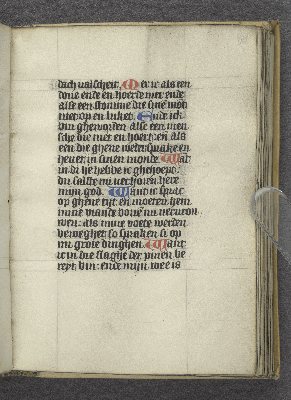 dach valscheit. Mer ic als een
doue ende en hoerde niet ende
alse een stomme die sine mōt
niet op en luket. Ende ic
bin gheworden alse een men
sche die niet en hoert: en als
een die ghene weder sprake en
heuet in sinen monde. Want
in di he hebbe ic ghehoept:
du salste mi verhoren here
mijn god. Want ic sprac
op ghene tijt en moeten hem
mine viande bouē mi verurou
wen: als mine voete werden
beweghet so spraken si op
mi grote dinghen. Want
ic in die slaghe der pinen be
reyt bin: ende mijn wee is